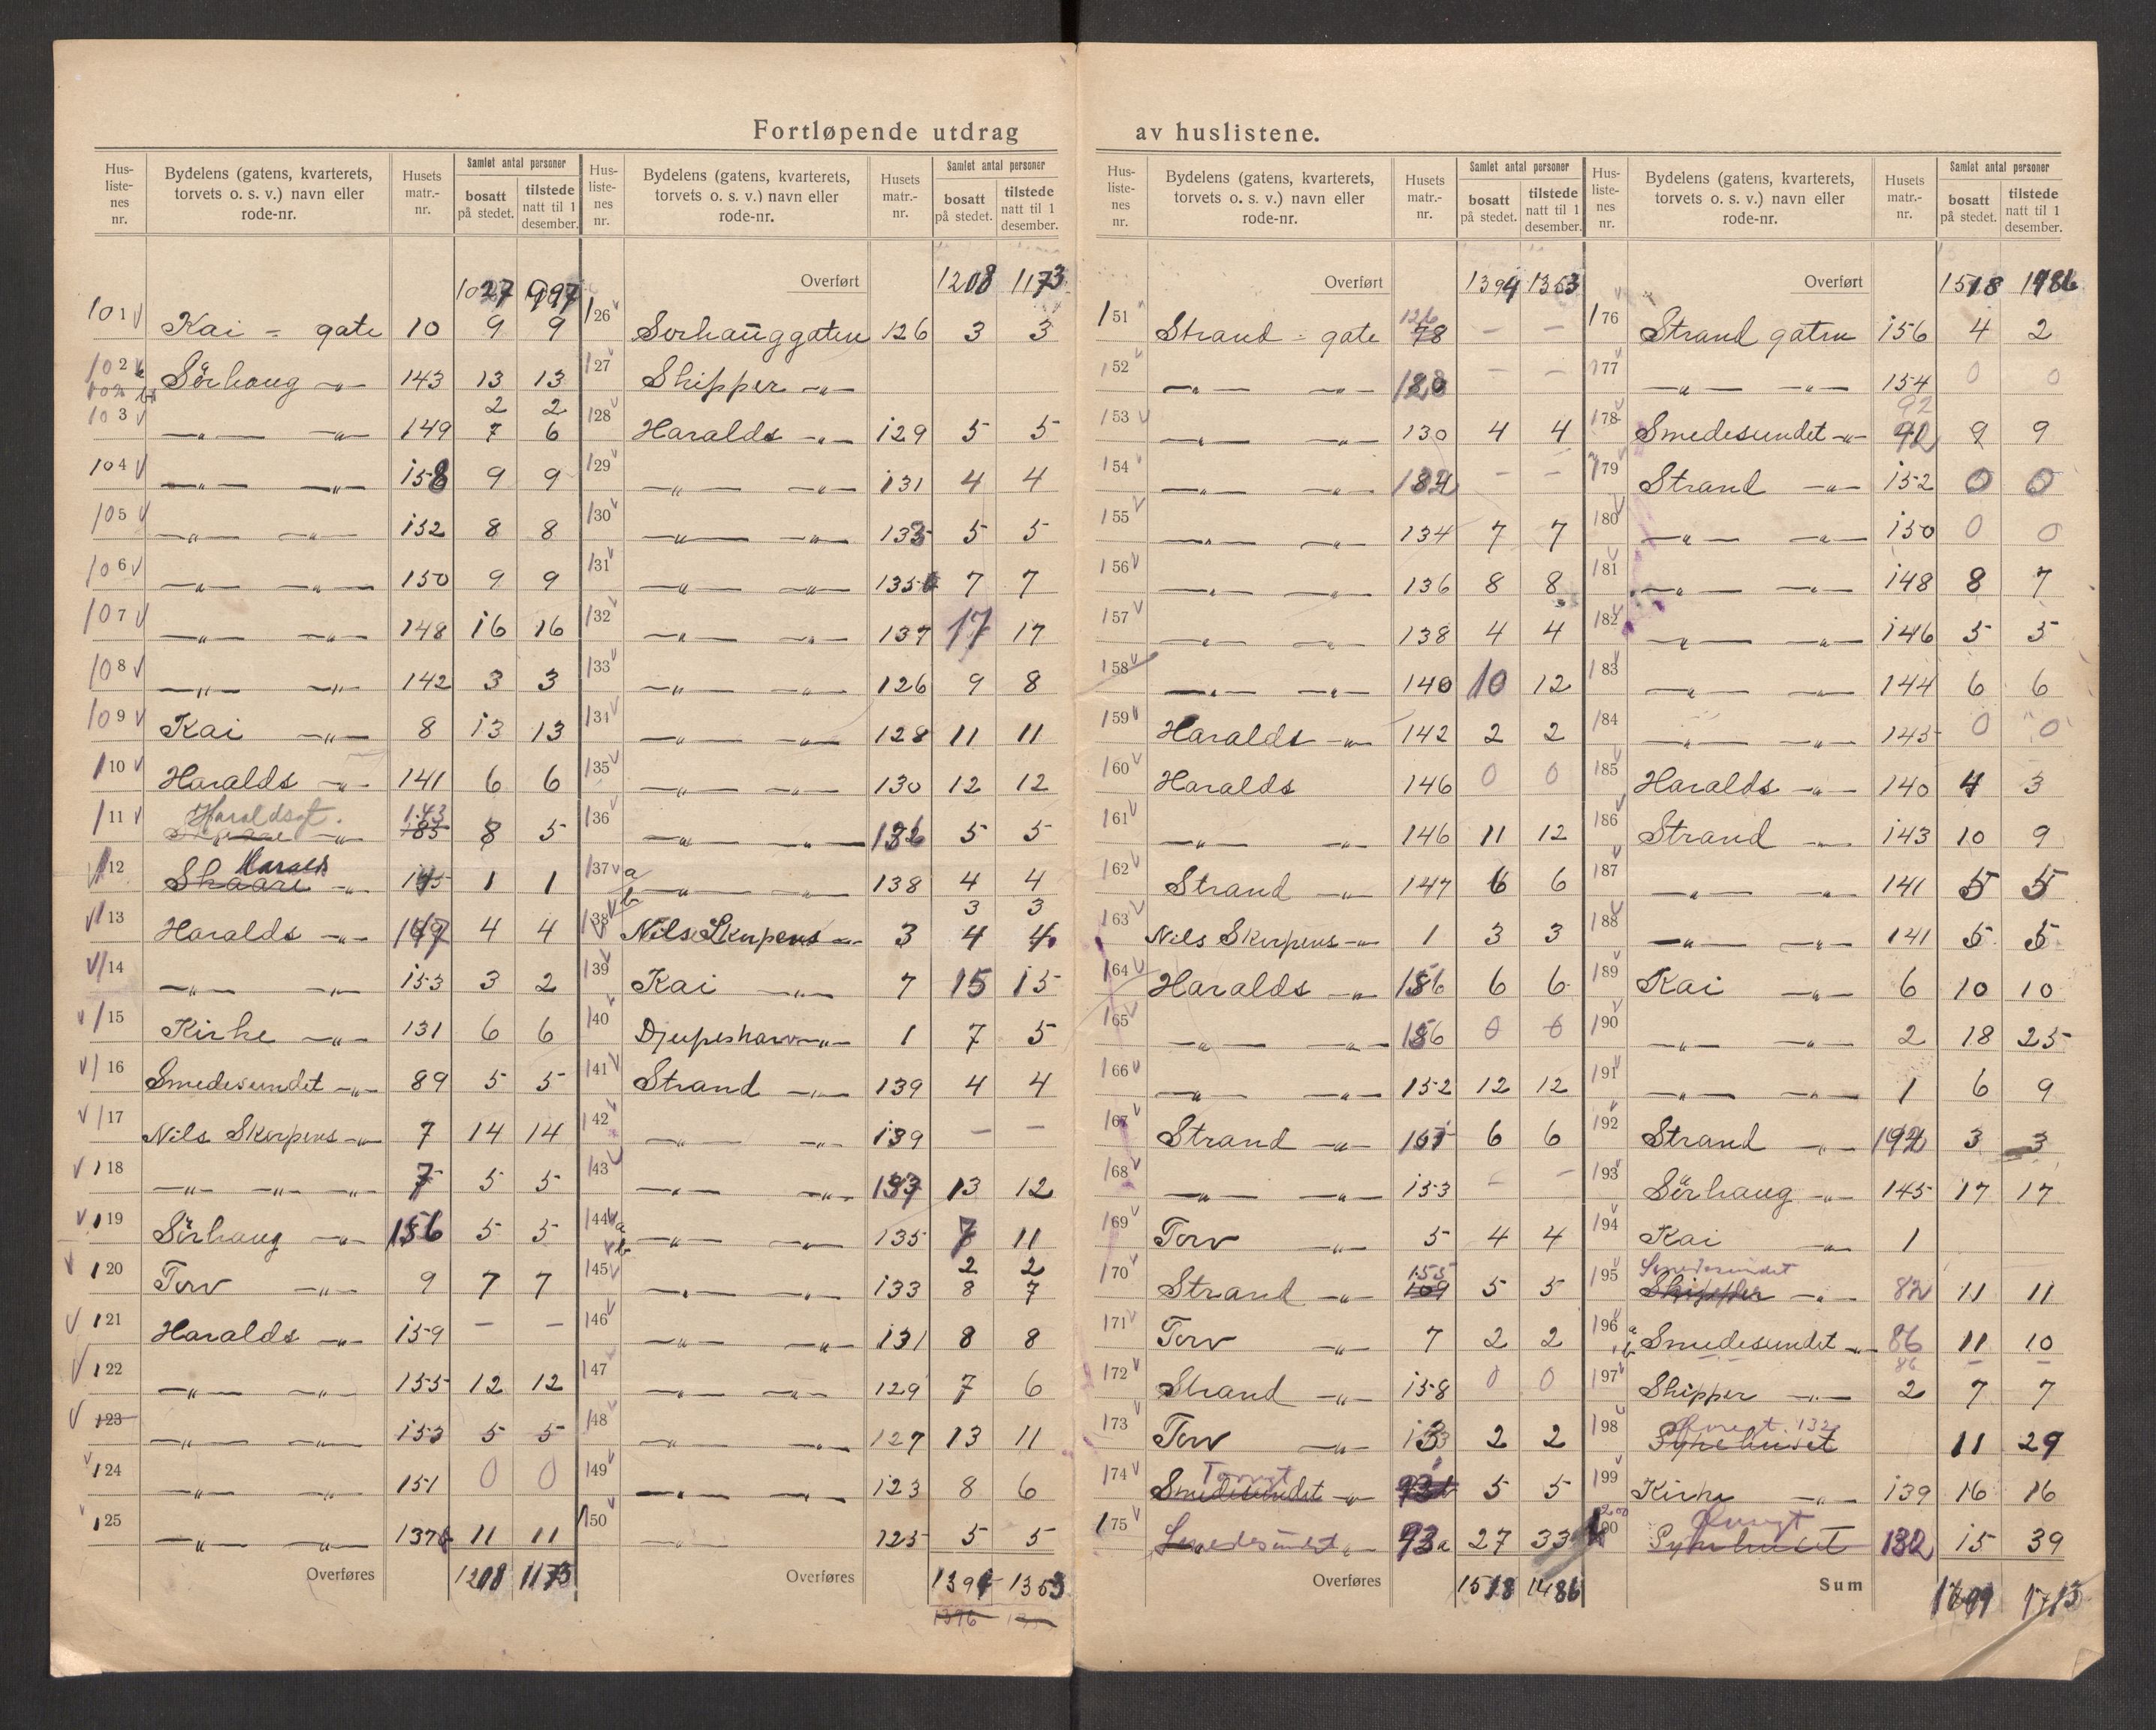 Fortløpende utdrag av huslistene.
Hus-liste-nes nr. Bydelens (gatens, kvarterets, torvets o. s. v.) navn eller rode-nr. Husets matr.-nr. Samlet antal personer bosatt på stedet. tilstede natt til 1 desember.
1027 997
101 Kai - gate 10 9 9
102 a Sörhaug -"- 143 13 13
102 b 2 2
103 -"- -"- 149 7 6
104 -"- -"- 158 9 9
105 -"- -"- 152 8 8
106 -"- -"- 150 9 9
107 -"- -"- 148 16 16
108 -"- -"- 142 3 3
109 Kai -"- 8 13 13
110 Haralds -"- 141 6 6
111 Haraldsgt. -"- 143 8 5
112 Skaare Haralds -"- 145 1 1
113 Haralds -"- 4 4
114 -"- -"- 153 3 2
115 Kirke -"- 131 6 6
116 Smedesundet -"- 89 5 5
117 Nils Skerpens -"- 7 14 14
118 -"- -"- -"- 7 5 5
119 Sörhaug -"- 156 5 5
120 Torv -"- 9 7 7
121 Haralds -"- 159 - -
122 -"- -"- 155 12 12
123 -"- -"- 153 5 5
124 -"- -"- 151 0 0
125 -"- -"- 137b 11 11
Overføres 1208 1173
Hus-liste-nes nr. Bydelens (gatens, kvarterets, torvets o. s. v.) navn eller rode-nr. Husets matr.-nr. Samlet antal personer bosatt på stedet. tilstede natt til 1 desember.
Overført 1208 1173
126 Sorhauggaten 126 3 3
127 Skipper -"-
128 Haralds -"- 129 5 5
129 -"- -"- 131 4 4
130 -"- -"- 133 5 5
131 -"- -"- 135 7 7
132 -"- -"- 137 17 17
133 -"- -"- 126 9 8
134 -"- -"- 128 11 11
135 -"- -"- 130 12 12
136 -"- -"- 132 5 5
137 a -"- -"- 138 4 4
b 3 3
138 Nils Skerpens -"- 3 4 4
139 Kai -"- 7 15 15
140 Djupeshavn -"- 1 7 5
141 Strand -"- 139 4 4
142 -"- -"- 139 - -
143 -"- -"- 137 13 12
144 a -"- -"- 135 7 11
b 2 2
145 -"- -"- 133 8 7
146 -"- -"- 131 8 8
147 -"- -"- 129 7 6
148 -"- -"- 127 13 11
149 -"- -"- 123 8 6
150 -"- 125 5 5
Overføres 1394 1353
1396
Hus-liste-nes nr. Bydelens (gatens, kvarterets, torvets o. s. v.) navn eller rode-nr. Husets matr.-nr. Samlet antal personer bosatt på stedet. tilstede natt til 1 desember.
Overført 1394 1353
151 Strand - gate 126 78 - -
152 -"- -"- 128 - -
153 -"- -"- 130 4 4
154 -"- -"- 132 - -
155 -"- -"- 134 7 7
156 -"- -"- 136 8 8
157 -"- -"- 138 4 4
158 -"- -"- 140 10 12
159 Haralds -"- 142 2 2
160 Haralds 146 0 0
161 -"- -"- 146 11 12
162 Strand -"- 147 6 6
163 Nils Skerpens -"- 1 3 3
164 Haralds -"- 156 6 6
165 -"- -"- 156 0 0
166 -"- -"- 152 12 12
167 Strand -"- 6 6
168 -"- -"- 153 - -
169 Torv -"- 5 4 4
170 Strand -"- 155 109 5 5
171 Torv -"- 7 2 2
172 Strand -"- 158 0 0
173 Torv -"- 2 2
174 Smedesundet Torvgt -"- 5 5
175 Smedesundet -"- 93a 27 33
Overføres 1518 1486
Hus-liste-nes nr. Bydelens (gatens, kvarterets, torvets o. s. v.) navn eller rode-nr. Husets matr.-nr. Samlet antal personer bosatt på stedet. tilstede natt til 1 desember.
Overført 1518 1486
176 Strand gaten 156 4 2
177 -"- -"- 154 0 0
178 Smedesundet -"- 92 9 9
179 Strand -"- 152 0 0
180 -"- -"- 150 0 0
181 -"- -"- 148 8 7
182 -"- -"- 146 5 5
183 -"- -"- 144 6 6
184 -"- -"- 145 0 0
185 Haralds -"- 140 4 3
186 Strand -"- 143 10 9
187 -"- -"- 141 5 5
188 -"- -"- 141 5 5
189 Kai -"- 6 10 10
190 -"- -"- 2 18 25
191 -"- -"- 1 6 9
192 Strand -"- 3 3
193 Sörhaug -"- 145 17 17
194 Kai -"- 1
195 Skipper Smedesundet -"- 82 11 11
196 a Smedesundet -"- 86 11 10
b 86 - -
197 Skipper -"- 2 7 7
198 Sykehuset 132 11 29
199 Kirke -"- 139 16 16
200 Sykehuset 132 15 39
Sum 1699 1713